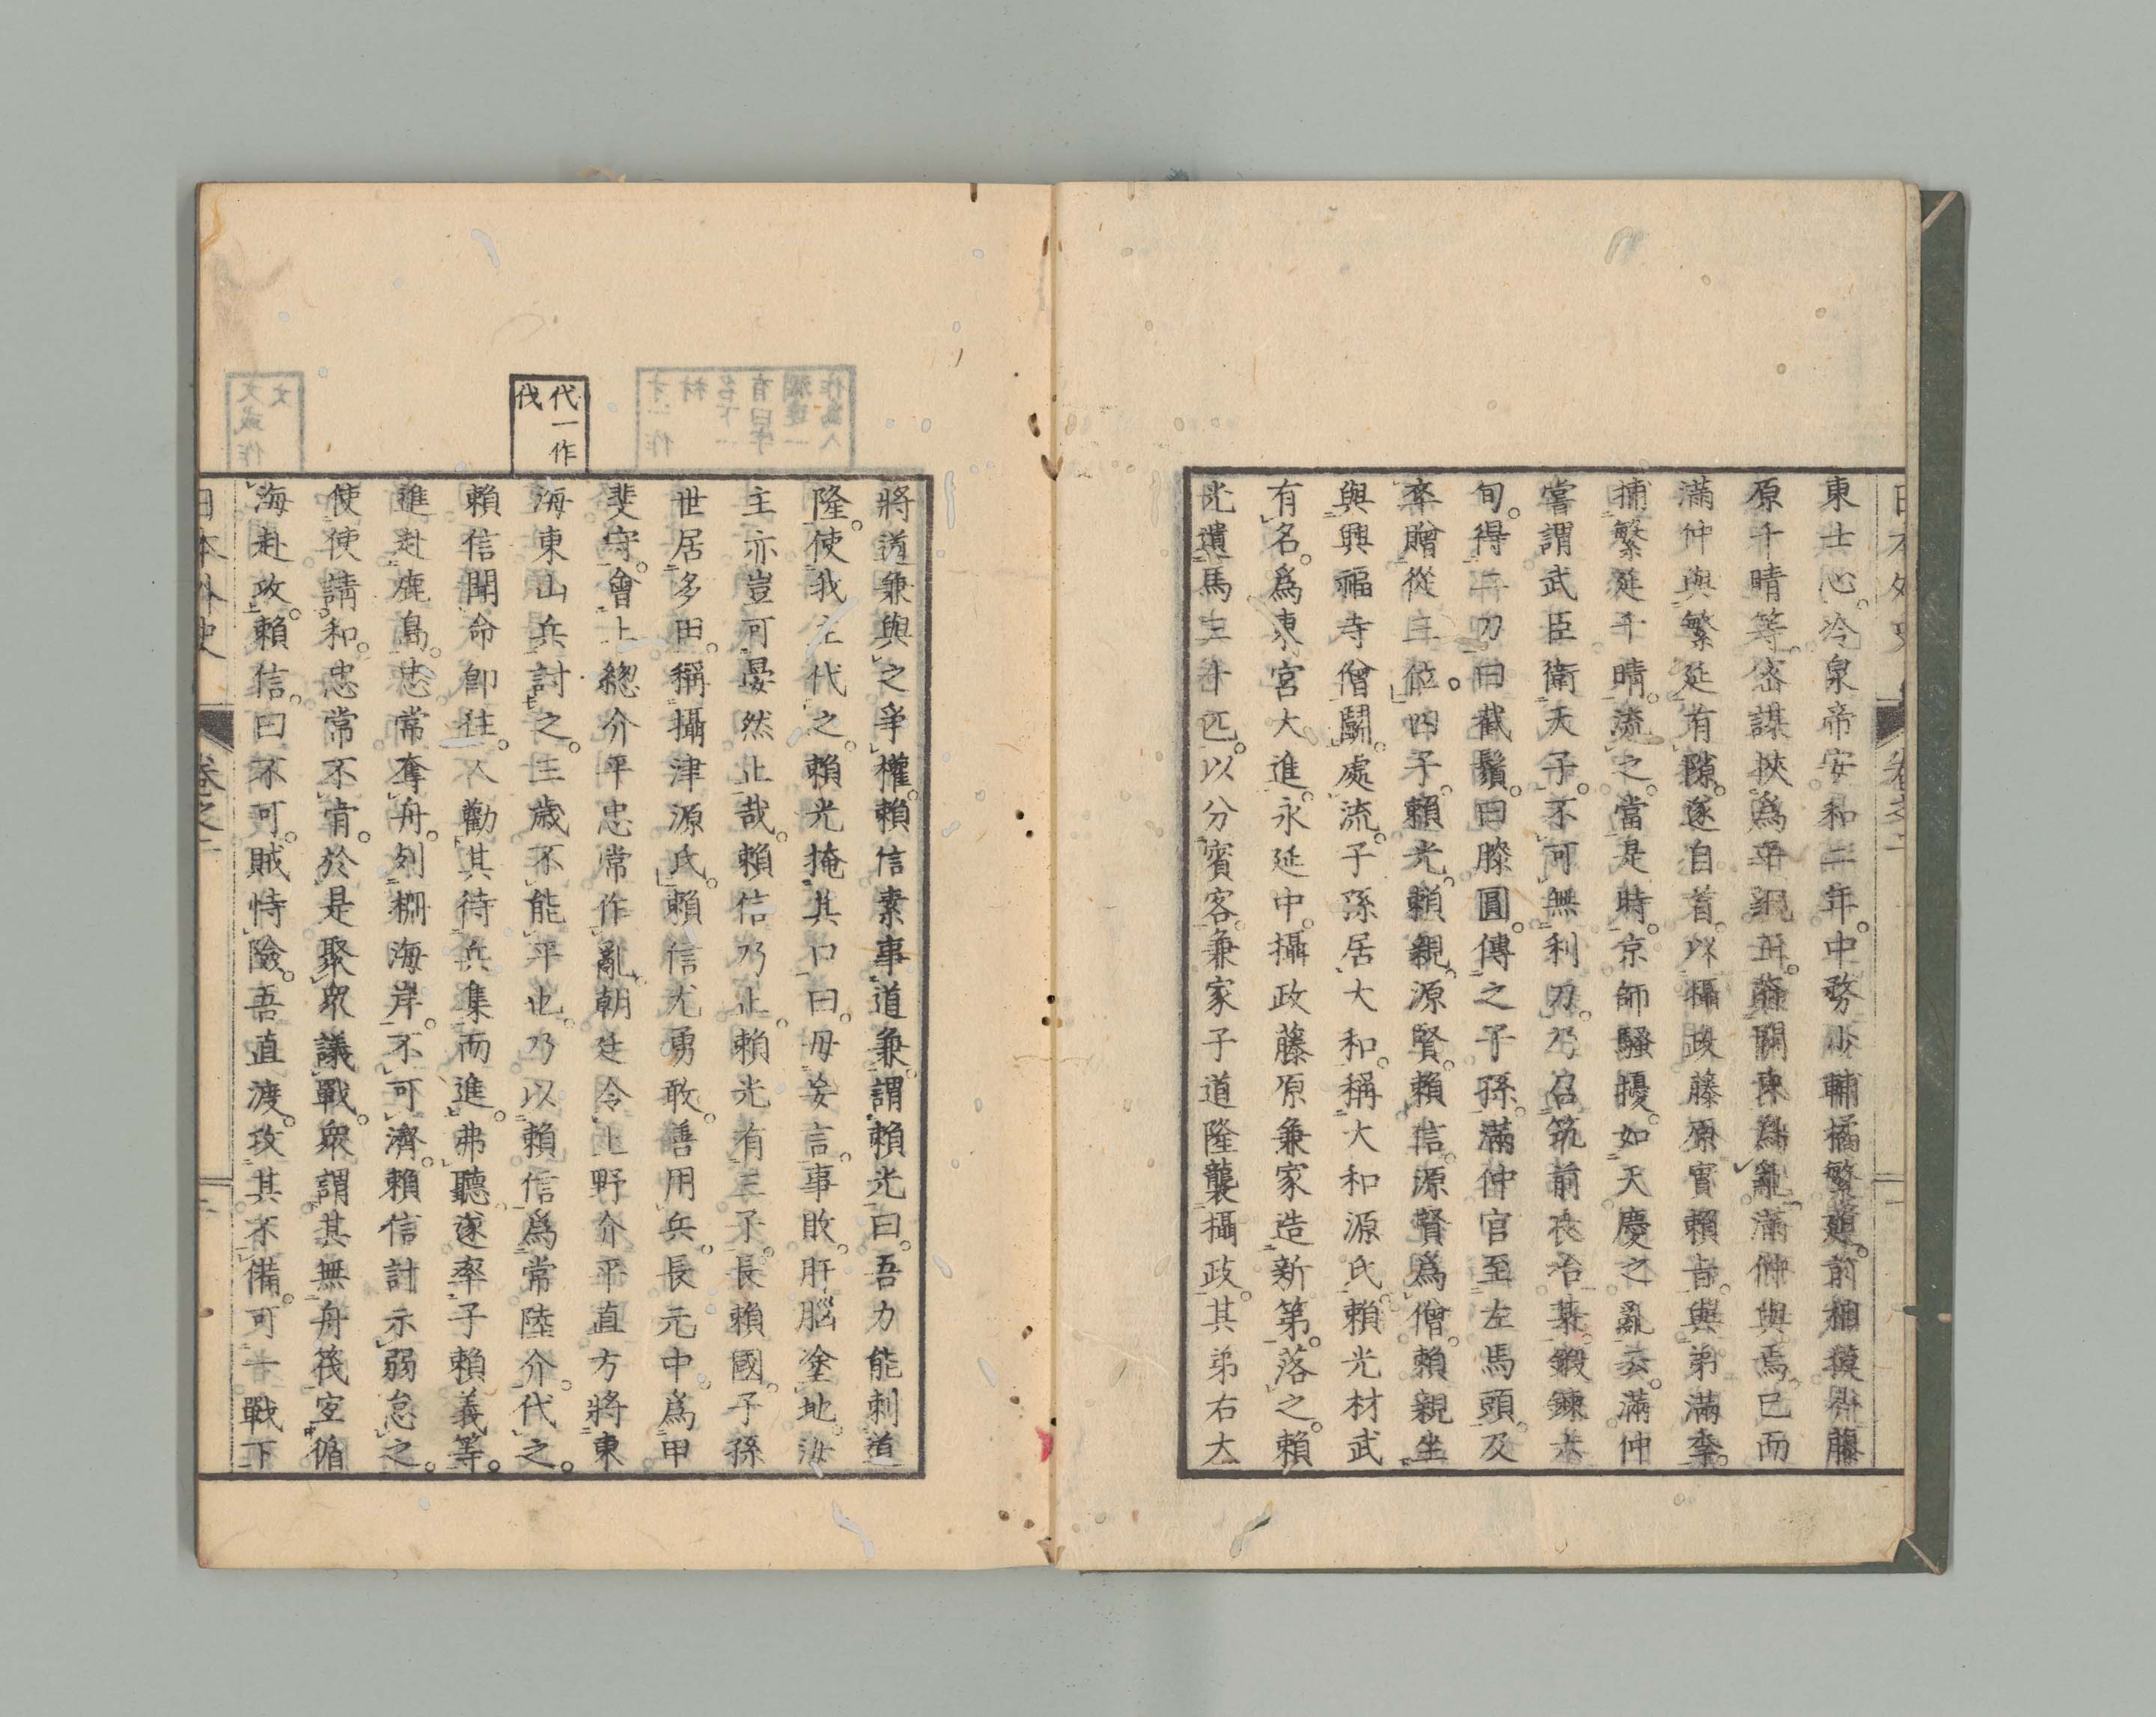 東士心。冷泉帝安和二年。中務少輔橘繁延。前相摸介藤
原千晴等。密謀挾爲平親王。藉關東爲亂。滿仲與焉。已而
滿仲與繁延有隙。遂自首。以攝政藤原實賴旨。與弟滿季。
捕繁延千晴。流之。當是時。京師騷擾。如天慶之亂云。滿仲
嘗謂武臣衛天子。不可無利刀。乃召筑前良冶某鍛鍊六
旬。得二刀。曰截鬚。曰膝圓。傳之子孫。滿仲官至左馬頭。及
卒贈從三位。四子。賴光。賴親。源賢。賴信。源賢爲僧。賴親坐
與興福寺僧鬪。處流。子孫居大和。稱大和源氏。賴光材武
有名。爲東宮大進。永延中。攝政藤原兼家造新第。落之。賴
光遺馬三十匹。以分賓客。兼家子道隆襲攝政。其弟右大
將道兼與之爭權。賴信素事道兼。謂賴光曰。吾力能刺道
隆。使我主代之。賴光掩其口曰。毋妄言。事敗。肝腦塗地。汝
主亦豈可晏然止哉。賴信乃止。賴光有三子。長賴國。子孫
世居多田。稱攝津源氏。賴信尤勇敢。善用兵。長元中。爲甲
斐守。會上總介平忠常作亂。朝廷令上野介平直方將東
海東山兵討之。三歲不能平也。乃以賴信爲常陸介。代之。
代一作
伐
賴信聞命卽往。人勸其待兵集而進。弗聽。遂率子賴義等。
進赴鹿島。忠常奪舟。列柵海岸。不可濟。賴信計示弱怠之。
使使請和。忠常不肯。於是聚衆議戰。衆謂其無舟筏宜循
海赴攻。賴信。曰不可。賊恃險。吾直渡。攻其不備。可一戰下